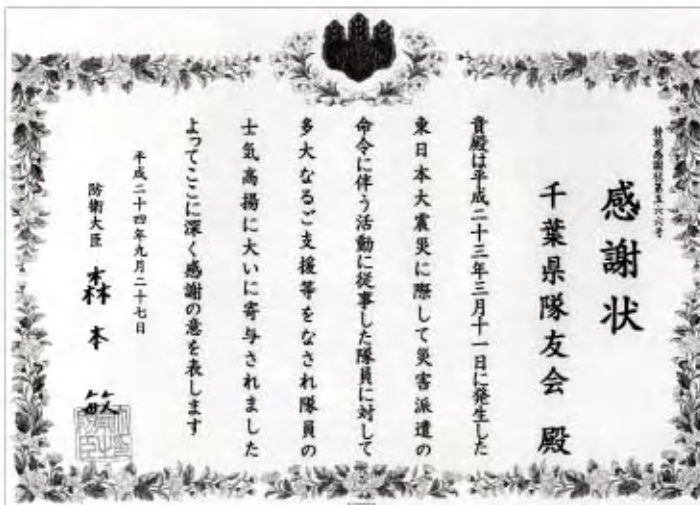 感謝状
千葉県隊友会 殿
貴殿は平成二十三年三月十一日に発生した
東日本大震災に際して災害派遣の
命令に伴う活動に従事した隊員に対して
多大なるご支援等をなされ隊員の
士気高揚に大いに寄与されました
よってここに深く感謝の意を表します
平成二十四年九月二十七日
防衛大臣 森本 敏